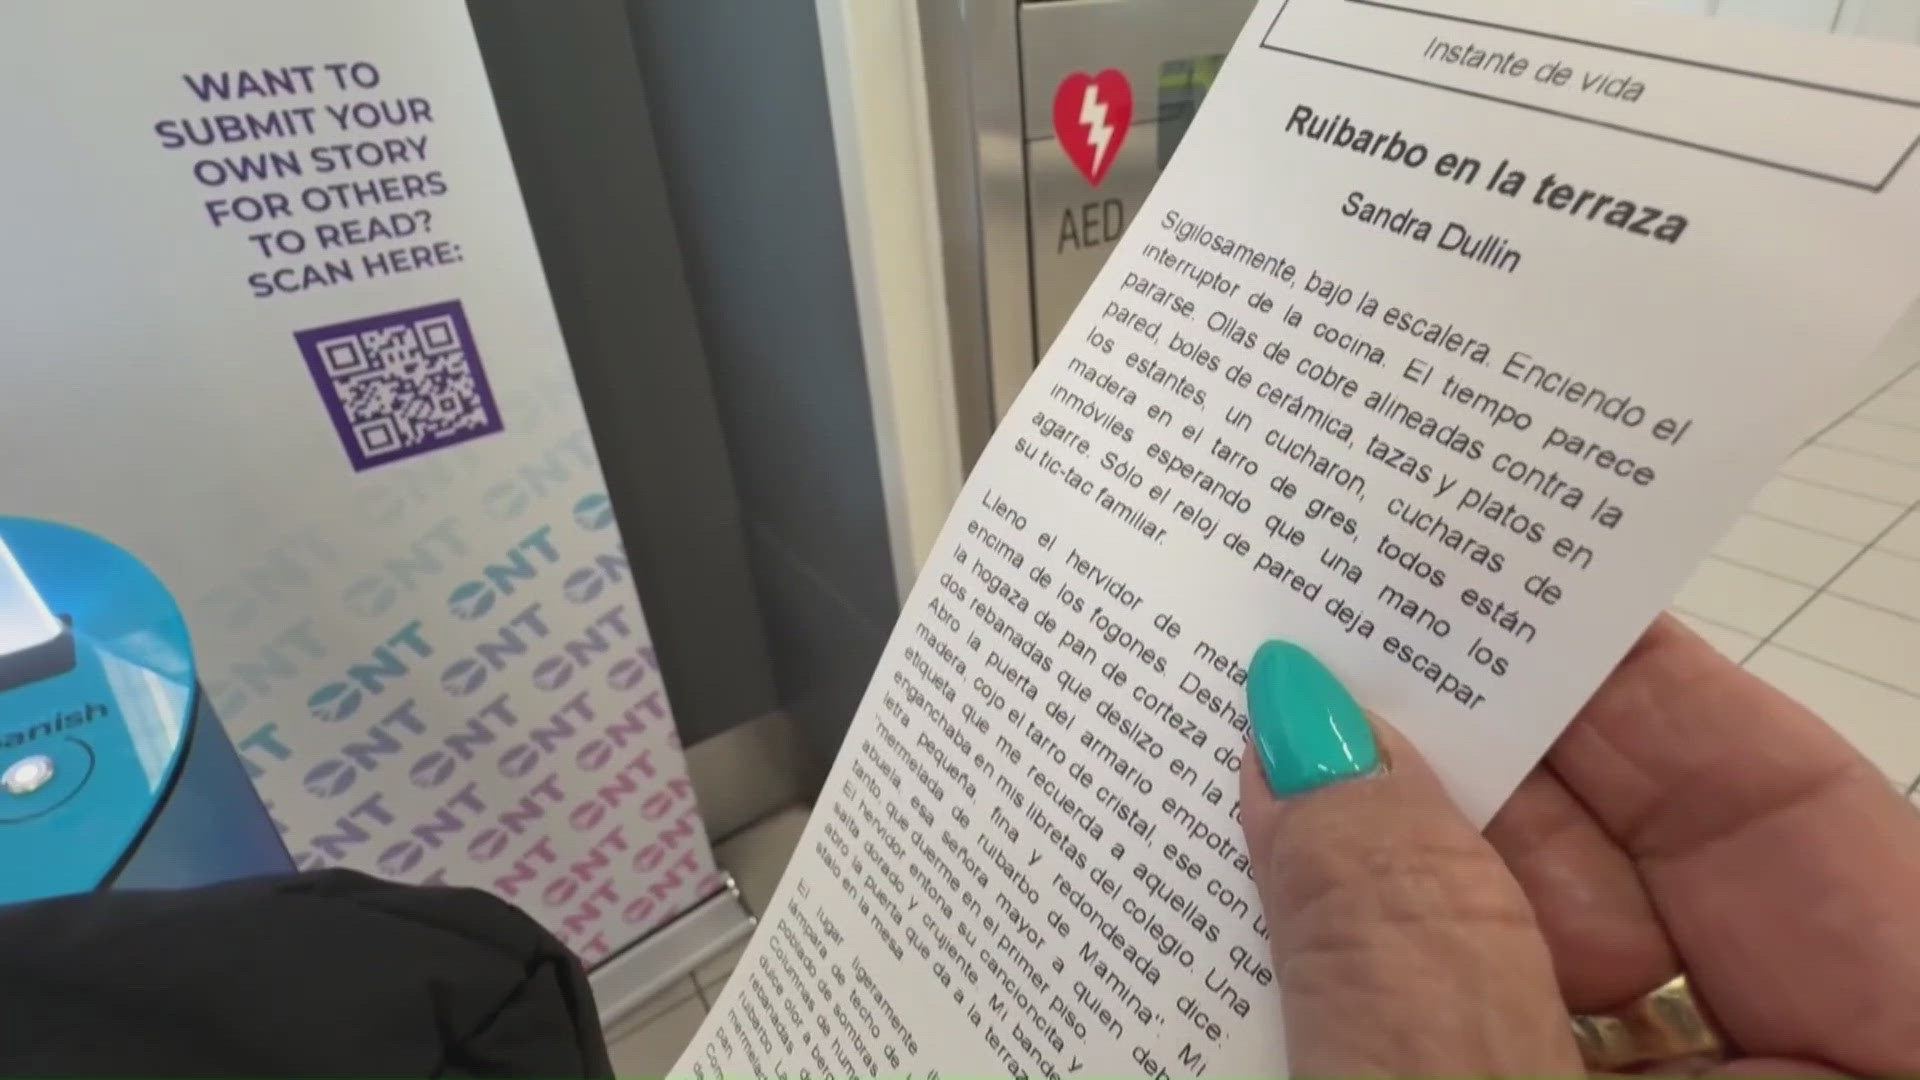 WANT TO
SUBMIT YOUR
OWN STORY
FOR OTHERS
TO READ?
SCAN HERE:
ONT ONT ONT
anish
AED
Instante de vida
Ruibarbo en la terraza
Sandra Dullin
Sigilosamente, bajo la escalera. Enciendo el
interruptor de la cocina. El tiempo parece
pararse. Ollas de cobre alineadas contra la
pared, boles de cerámica, tazas y platos en
los estantes, un cucharon, cucharas de
madera en el tarro de gres, todos están
inmóviles esperando que una mano los
agarre. Sólo el reloj de pared deja escapar
su tic-tac familiar.
Lleno el hervidor de meta
encima de los fogones. Desha
la hogaza de pan de corteza do
dos rebanadas que deslizo en la t
Abro la puerta del armario empotra
madera, cojo el tarro de cristal, ese con u
etiqueta que me recuerda a aquellas que
enganchaba en mis libretas del colegio. Una
letra pequeña, fina y redondeada dice:
"mermelada de ruibarbo de Mamina". Mi
abuela, esa señora mayor a quien deb
tanto, que duerme en el primer piso.
El hervidor entona su cancioncita y
salta dorado y crujiente. Mi bande
abro la puerta que da a la terraz
stalo en la mesa
El lugar ligeramente
lámpara de techo de
poblado de sombras.
Columnas de hume
dulce olor a
rebanadas
ruibarbo. La
mermelad
pan
Com